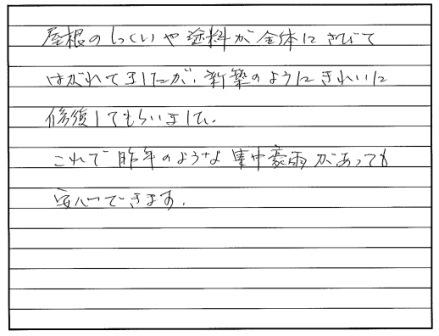 屋根のしっくいや塗料が全体にさびて
はがれてましたが、新築のようにきれいに
修復してもらいました。
これで昨年のような集中豪雨があっても
安心できます。